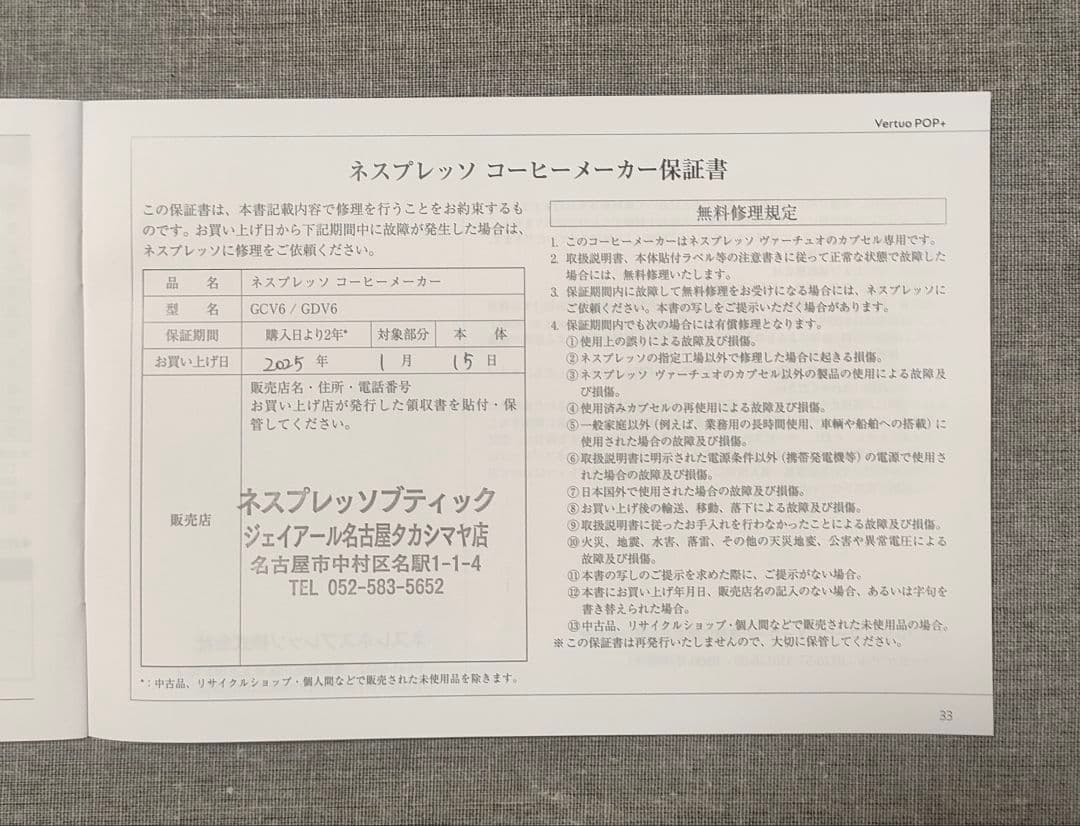 Vertuo POP+
ネスプレッソ コーヒーメーカー保証書
この保証書は、本書記載内容で修理を行うことをお約束するも
のです。お買い上げ日から下記期間中に故障が発生した場合は、
ネスプレッソに修理をご依頼ください。
品 名 ネスプレッソ コーヒーメーカー
型 名 GCV6 / GDV6
保証期間 購入日より2年* 対象部分 本 体
お買い上げ日 2025 年 1 月 15 日
販売店
販売店名・住所・電話番号
お買い上げ店が発行した領収書を貼付・保
管してください。
ネスプレッソブティック
ジェイアール名古屋タカシマヤ店
名古屋市中村区名駅1-1-4
TEL 052-583-5652
*：中古品、リサイクルショップ・個人間などで販売された未使用品を除きます。
無料修理規定
1. このコーヒーメーカーはネスプレッソ ヴァーチュオのカプセル専用です。
2. 取扱説明書、本体貼付ラベル等の注意書きに従って正常な状態で故障した
場合には、無料修理いたします。
3. 保証期間内に故障して無料修理をお受けになる場合には、ネスプレッソに
ご依頼ください。本書の写しをご提示いただく場合があります。
4. 保証期間内でも次の場合には有償修理となります。
①使用上の誤りによる故障及び損傷。
②ネスプレッソの指定工場以外で修理した場合に起きる損傷。
③ネスプレッソ ヴァーチュオのカプセル以外の製品の使用による故障及
び損傷。
④使用済みカプセルの再使用による故障及び損傷。
⑤一般家庭以外（例えば、業務用の長時間使用、車輌や船舶への搭載）に
使用された場合の故障及び損傷。
⑥取扱説明書に明示された電源条件以外（携帯発電機等）の電源で使用さ
れた場合の故障及び損傷。
⑦日本国外で使用された場合の故障及び損傷。
⑧お買い上げ後の輸送、移動、落下による故障及び損傷。
⑨取扱説明書に従ったお手入れを行わなかったことによる故障及び損傷。
⑩火災、地震、水害、落雷、その他の天災地変、公害や異常電圧による
故障及び損傷。
⑪本書の写しのご提示を求めた際に、ご提示がない場合。
⑫本書にお買い上げ年月日、販売店名の記入のない場合、あるいは字句を
書き替えられた場合。
⑬中古品、リサイクルショップ・個人間などで販売された未使用品の場合。
※この保証書は再発行いたしませんので、大切に保管してください。
33